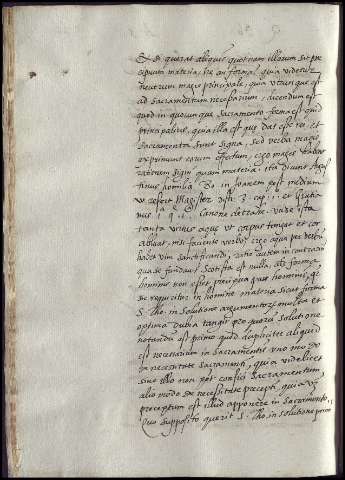 Et si querat aliquis quotnam illorum sit pre
cipuum materia, ne an forma? quia videtur
neutrum magis principale, quia utrumque est
ad sacramentum necessarium, dicendum est
quod in quocunque sacramento forma est quid
principalius, quia illa est que dat esse rei, et
sacramenta sunt signa, sed verba magis
exprimunt eorum effectum, ergo magis habent
rationem signi quam materia. ita divus Augus
tinus homilia 80 in Joannem post medium
refert Magister dist. 3. cap. 1. et Gratia
nus 1. q. 1. canone detrahe. unde ista
tanta virtus aque ut corpus tangat et cor
abluat, nisi faciente verbo? ergo aqua per verba
habet vim sanctificandi, ratio autem in contrarium
qua se fundant Scotiste est nulla, alias forma
hominis non esset precipua pars hominis, quia
se requiritur in homine materia sicut forma
S. Tho. in solutione argumentorum multa et
optima dubia tangit pro quorum solutione
notandum est primo quod dupliciter aliquid
est necessarium in sacramentis uno modo de
necessitate sacramenti, quia videlicet
sine illo non potest confici sacramentum,
alio modo de necessitate precepti, quia
preceptum est illud apponere in sacramento.
Quo supposito querit S. Tho. in solutione primi